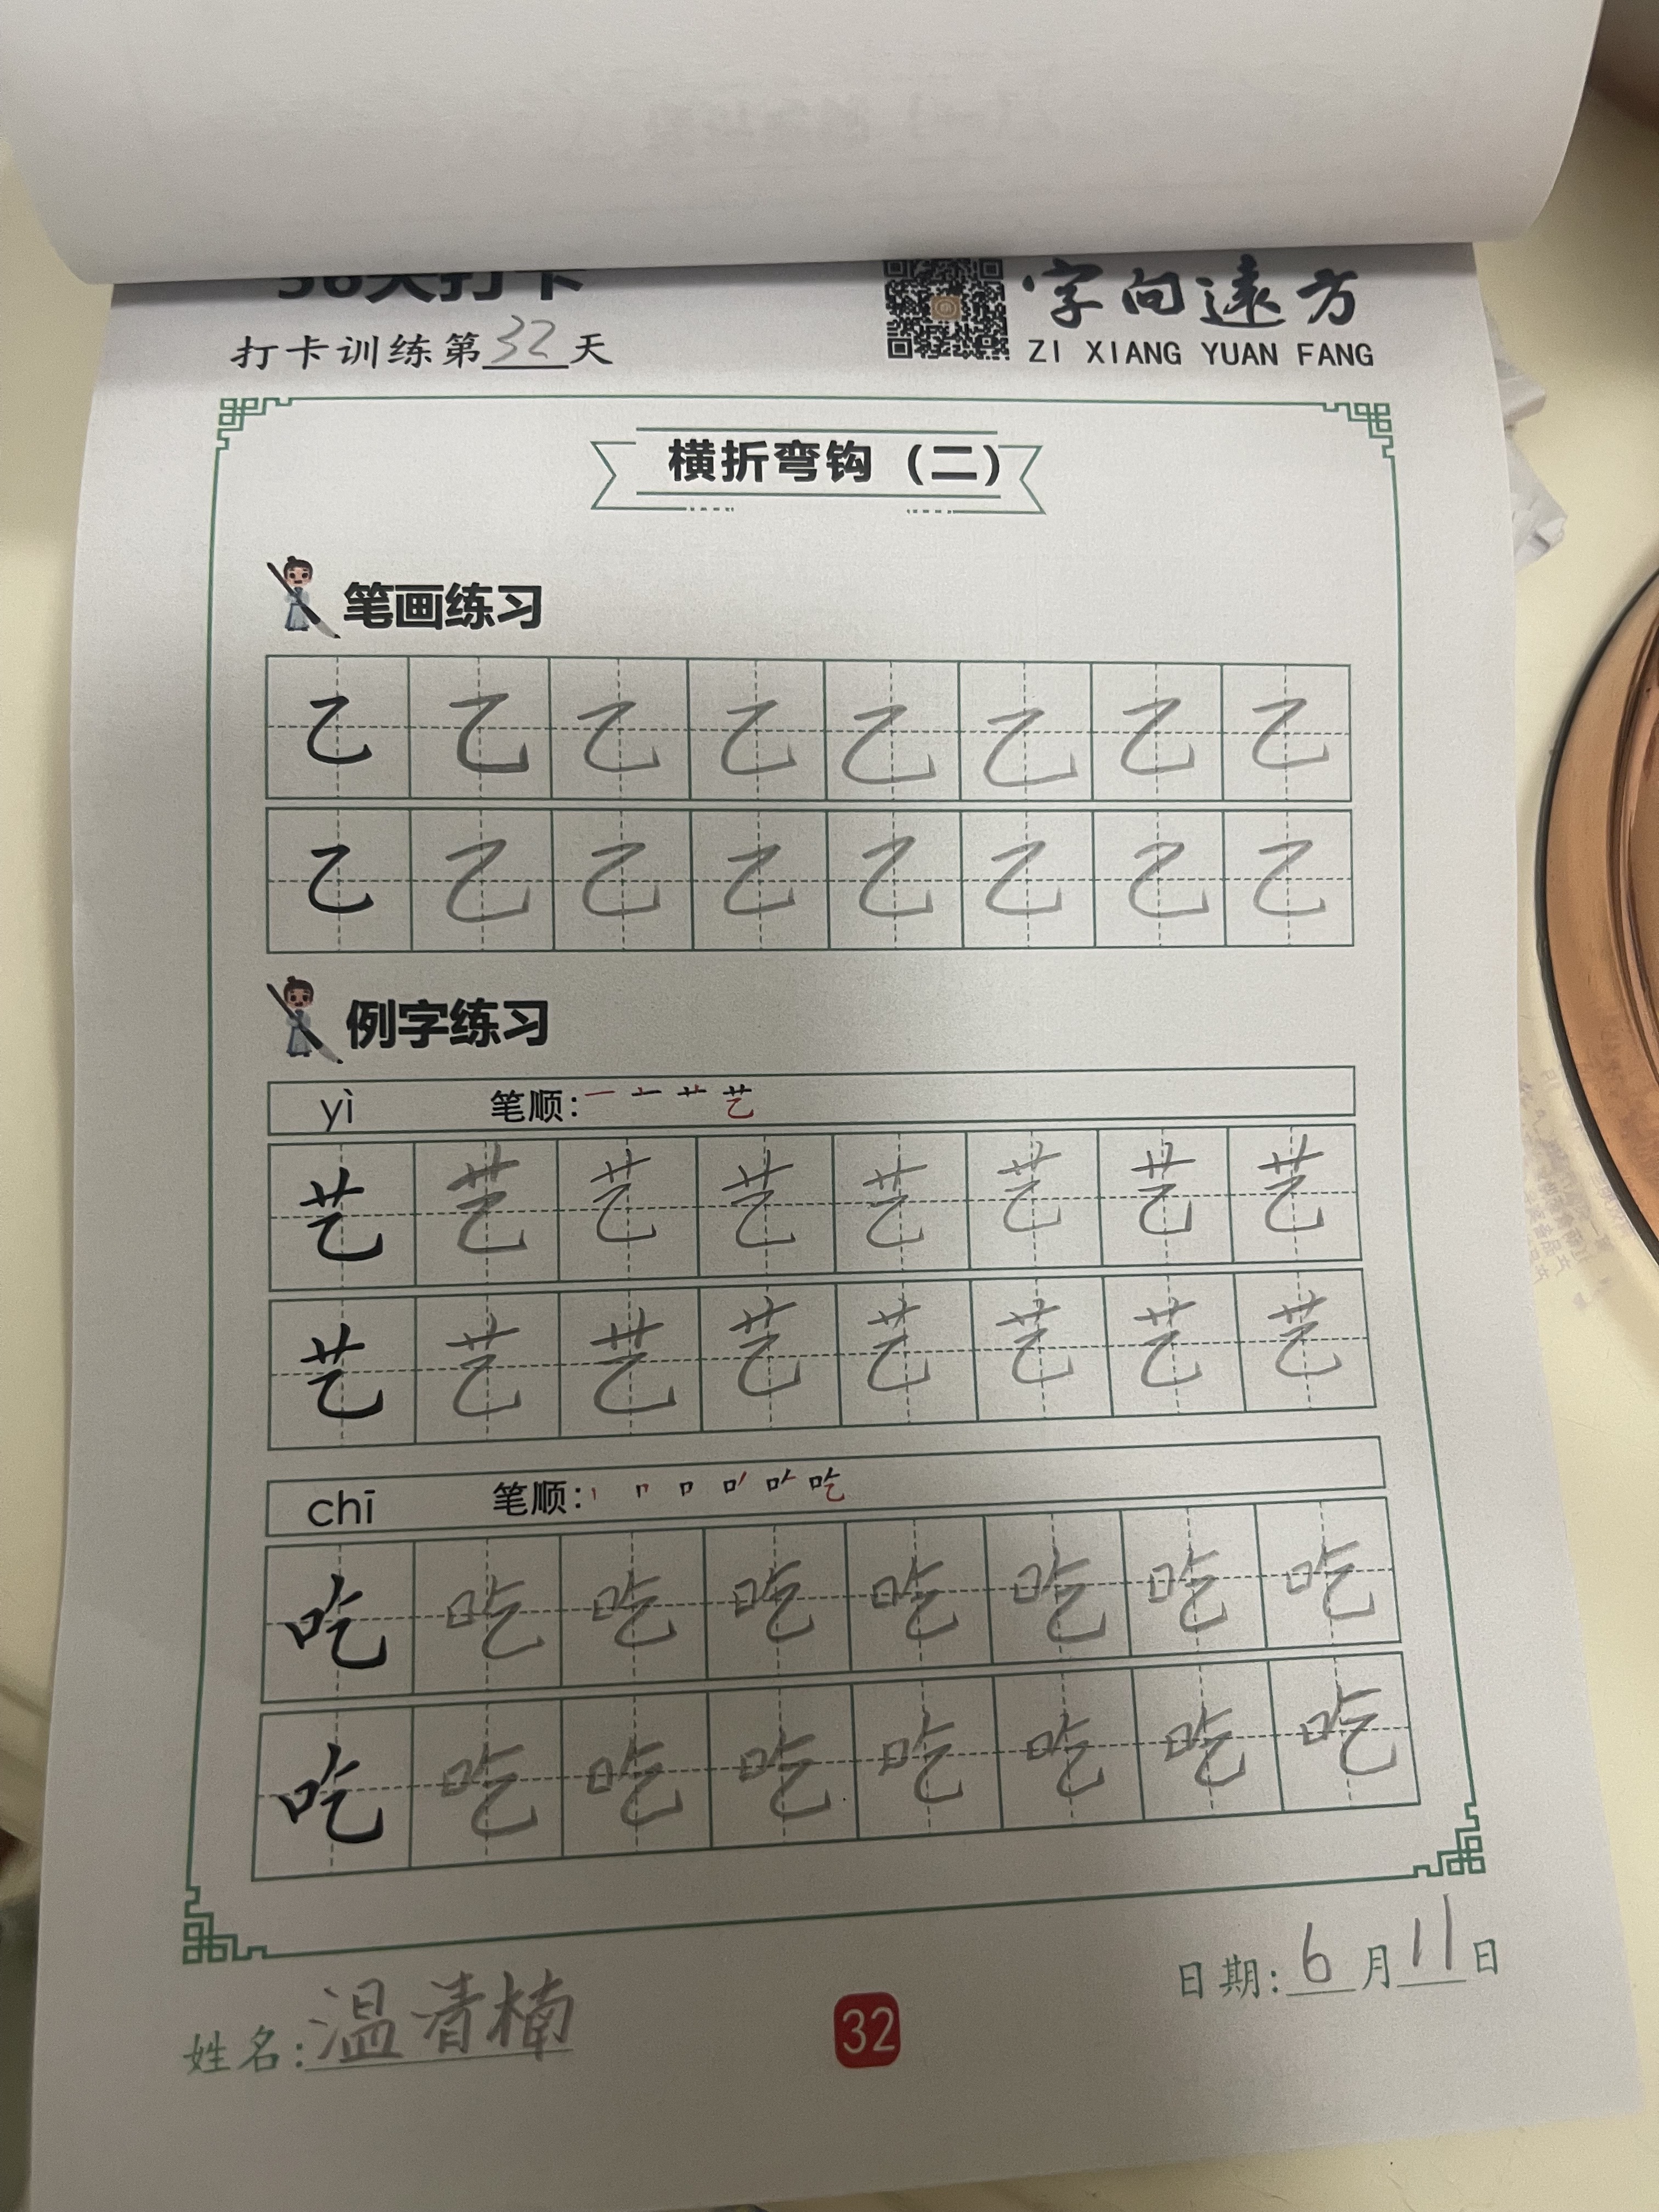 打卡训练第32天
字向远方
ZI XIANG YUAN FANG
横折弯钩（二）
笔画练习
乙 乙 乙 乙 乙 乙 乙 乙
乙 乙 乙 乙 乙 乙 乙 乙
例字练习
yì 笔顺: 艺
艺 艺 艺 艺 艺 艺 艺 艺
艺 艺 艺 艺 艺 艺 艺 艺
chī 笔顺: 吃
吃 吃 吃 吃 吃 吃 吃 吃
吃 吃 吃 吃 吃 吃 吃 吃
日期: 6月11日
姓名: 温清楠
32